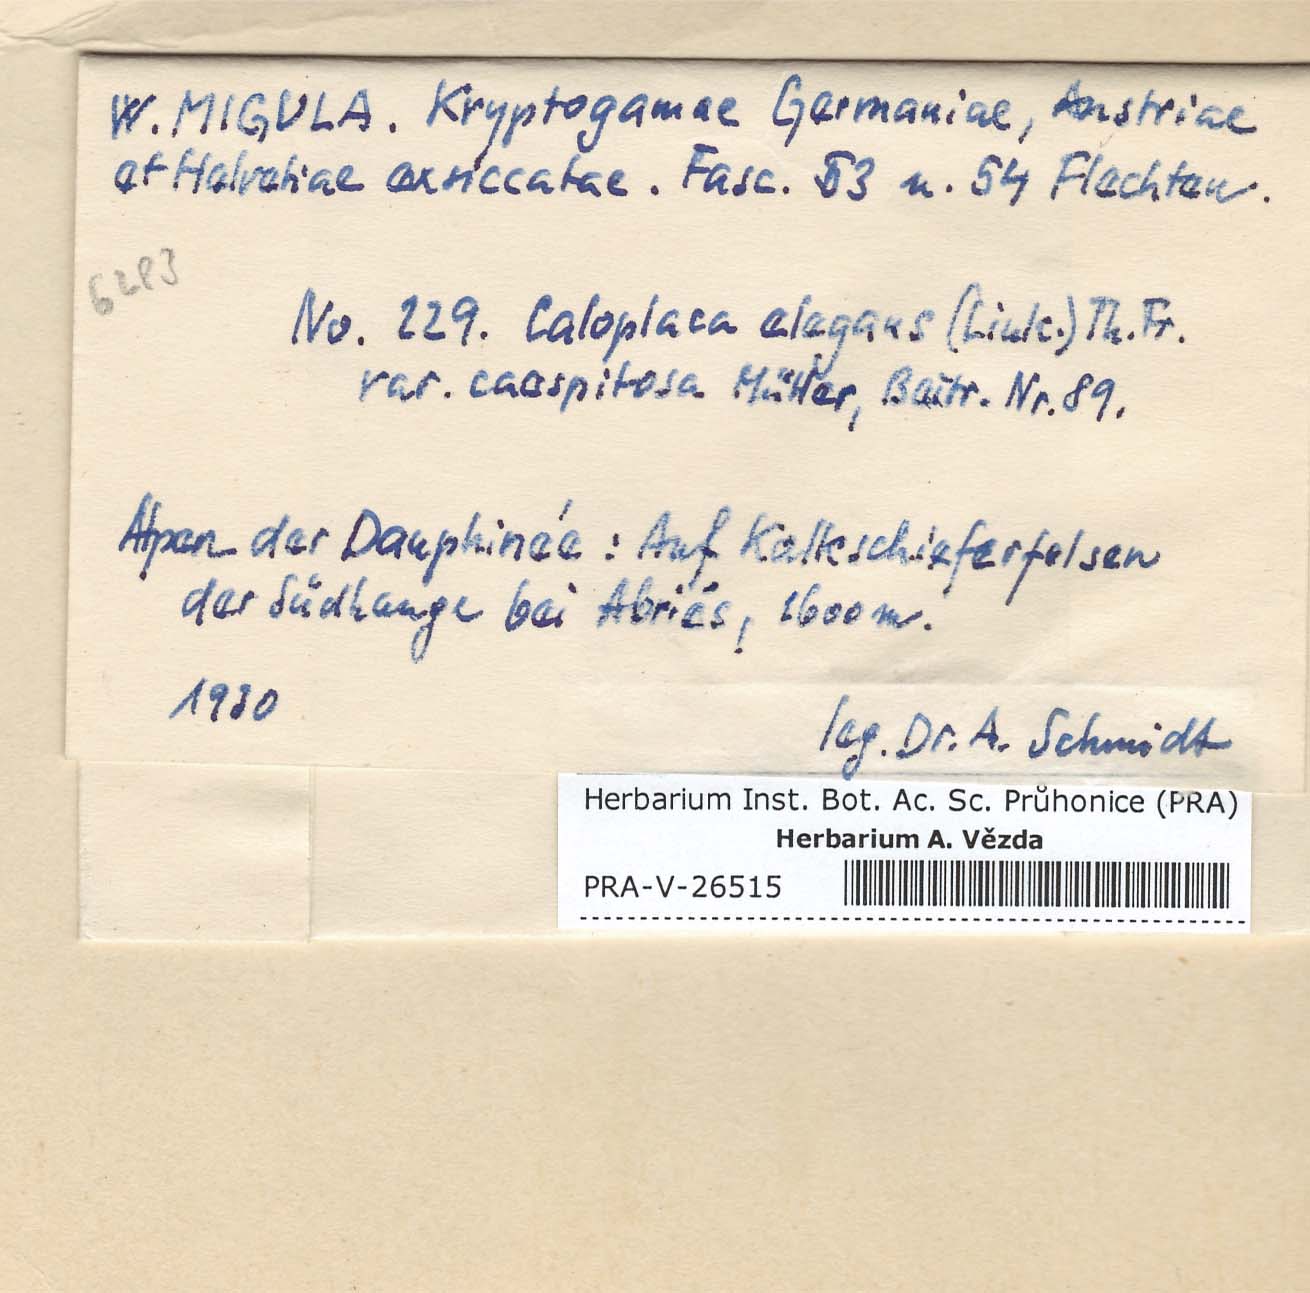 W. MIGULA. Kryptogamae Germaniae, Austriae
et Helvetiae exsiccatae. Fasc. 53 u. 54 Flechten.
No. 229. Caloplaca elegans (Link.) Th. Fr.
var. caespitosa Müller, Beitr. Nr. 89.
Alpen der Dauphinée : Auf Kalkschieferfelsen
der Südhange bei Abriés, 1600 m.
1930
leg. Dr. A. Schmidt
Herbarium Inst. Bot. Ac. Sc. Průhonice (PRA)
Herbarium A. Vězda
PRA-V-26515